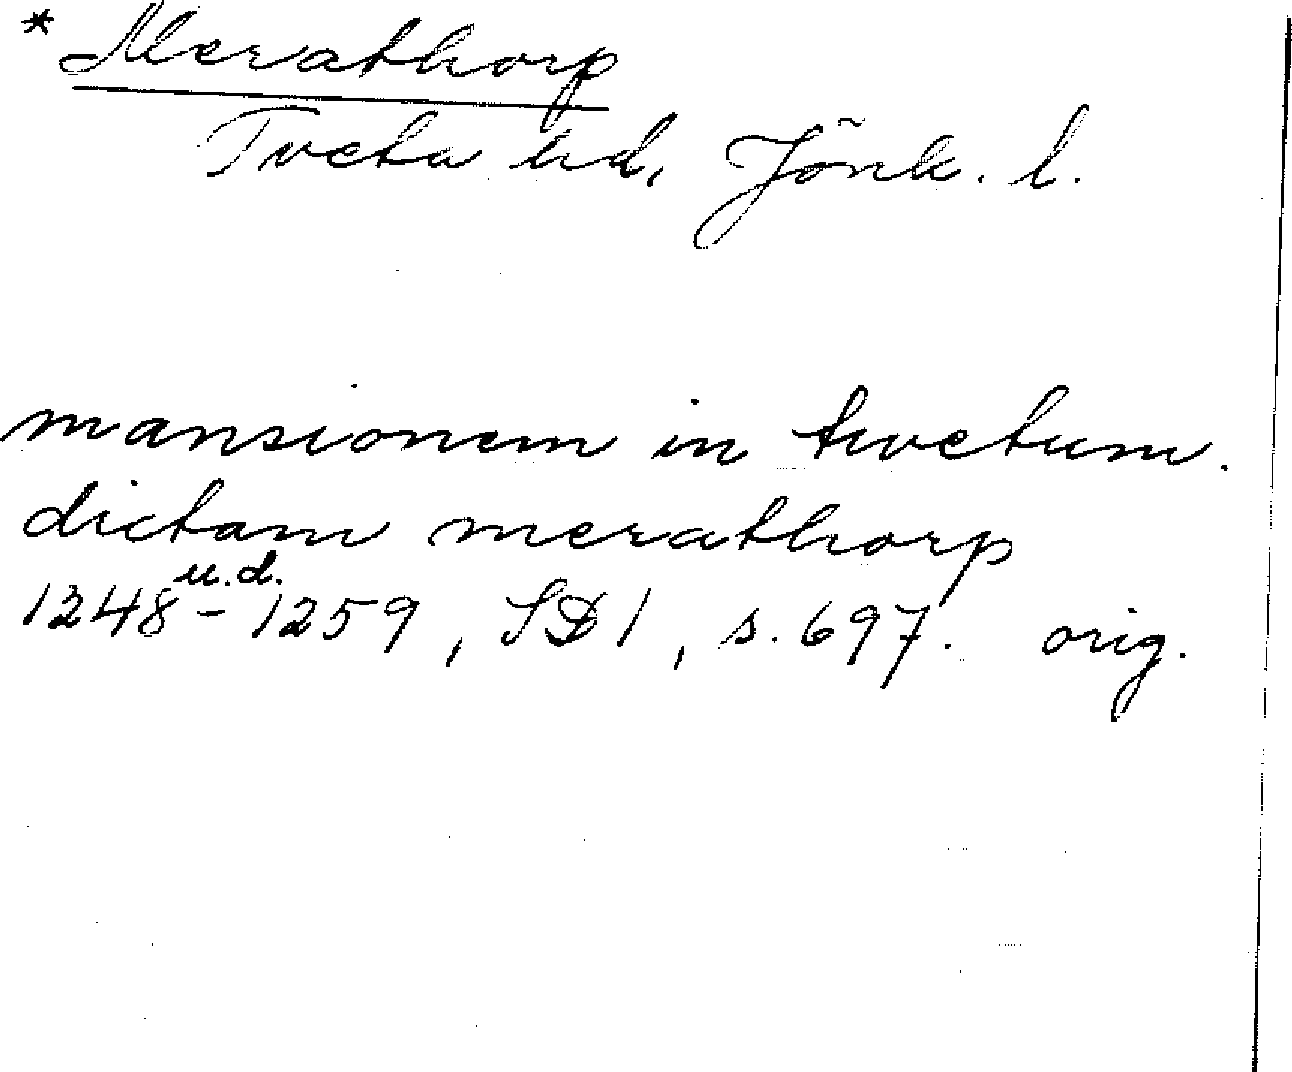 * Merathorp
Tveta hd, Jönk. l.
mansionem in twetum.
dictam merathorp
u.d.
1248-1259, SD 1, s. 697. orig.